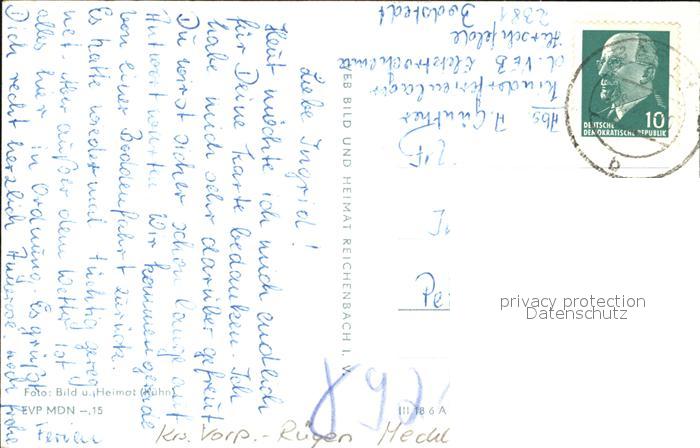 Liebe Ingrid!
Heut möchte ich mich endlich
für Deine Karte bedanken. Ich
habe mich sehr darüber gefreut
Du wirst sicher schon lange auf
Antwort warten Wir kommen gerade
von einer Boddenfahrt zurück.
Es hatte wieder mal tüchtig gereg
net. Aber außer dem Wetter ist
alles hier in Ordnung. Es grüßt
Dich recht herzlich noch frohe
Ferien
Abs A. Günther
Kinderferienlager
d. VEB Elektrochemie
Hirschfelde
2381
Bodstedt
DEUTSCHE
DEMOKRATISCHE REPUBLIK
10
VEB BILD UND HEIMAT REICHENBACH I. V.
privacy protection
Datenschutz
Foto: Bild u. Heimat (Kühn)
EVP MDN –.15
III 18 6 A
Krs. Vorp.- Rügen Meckl